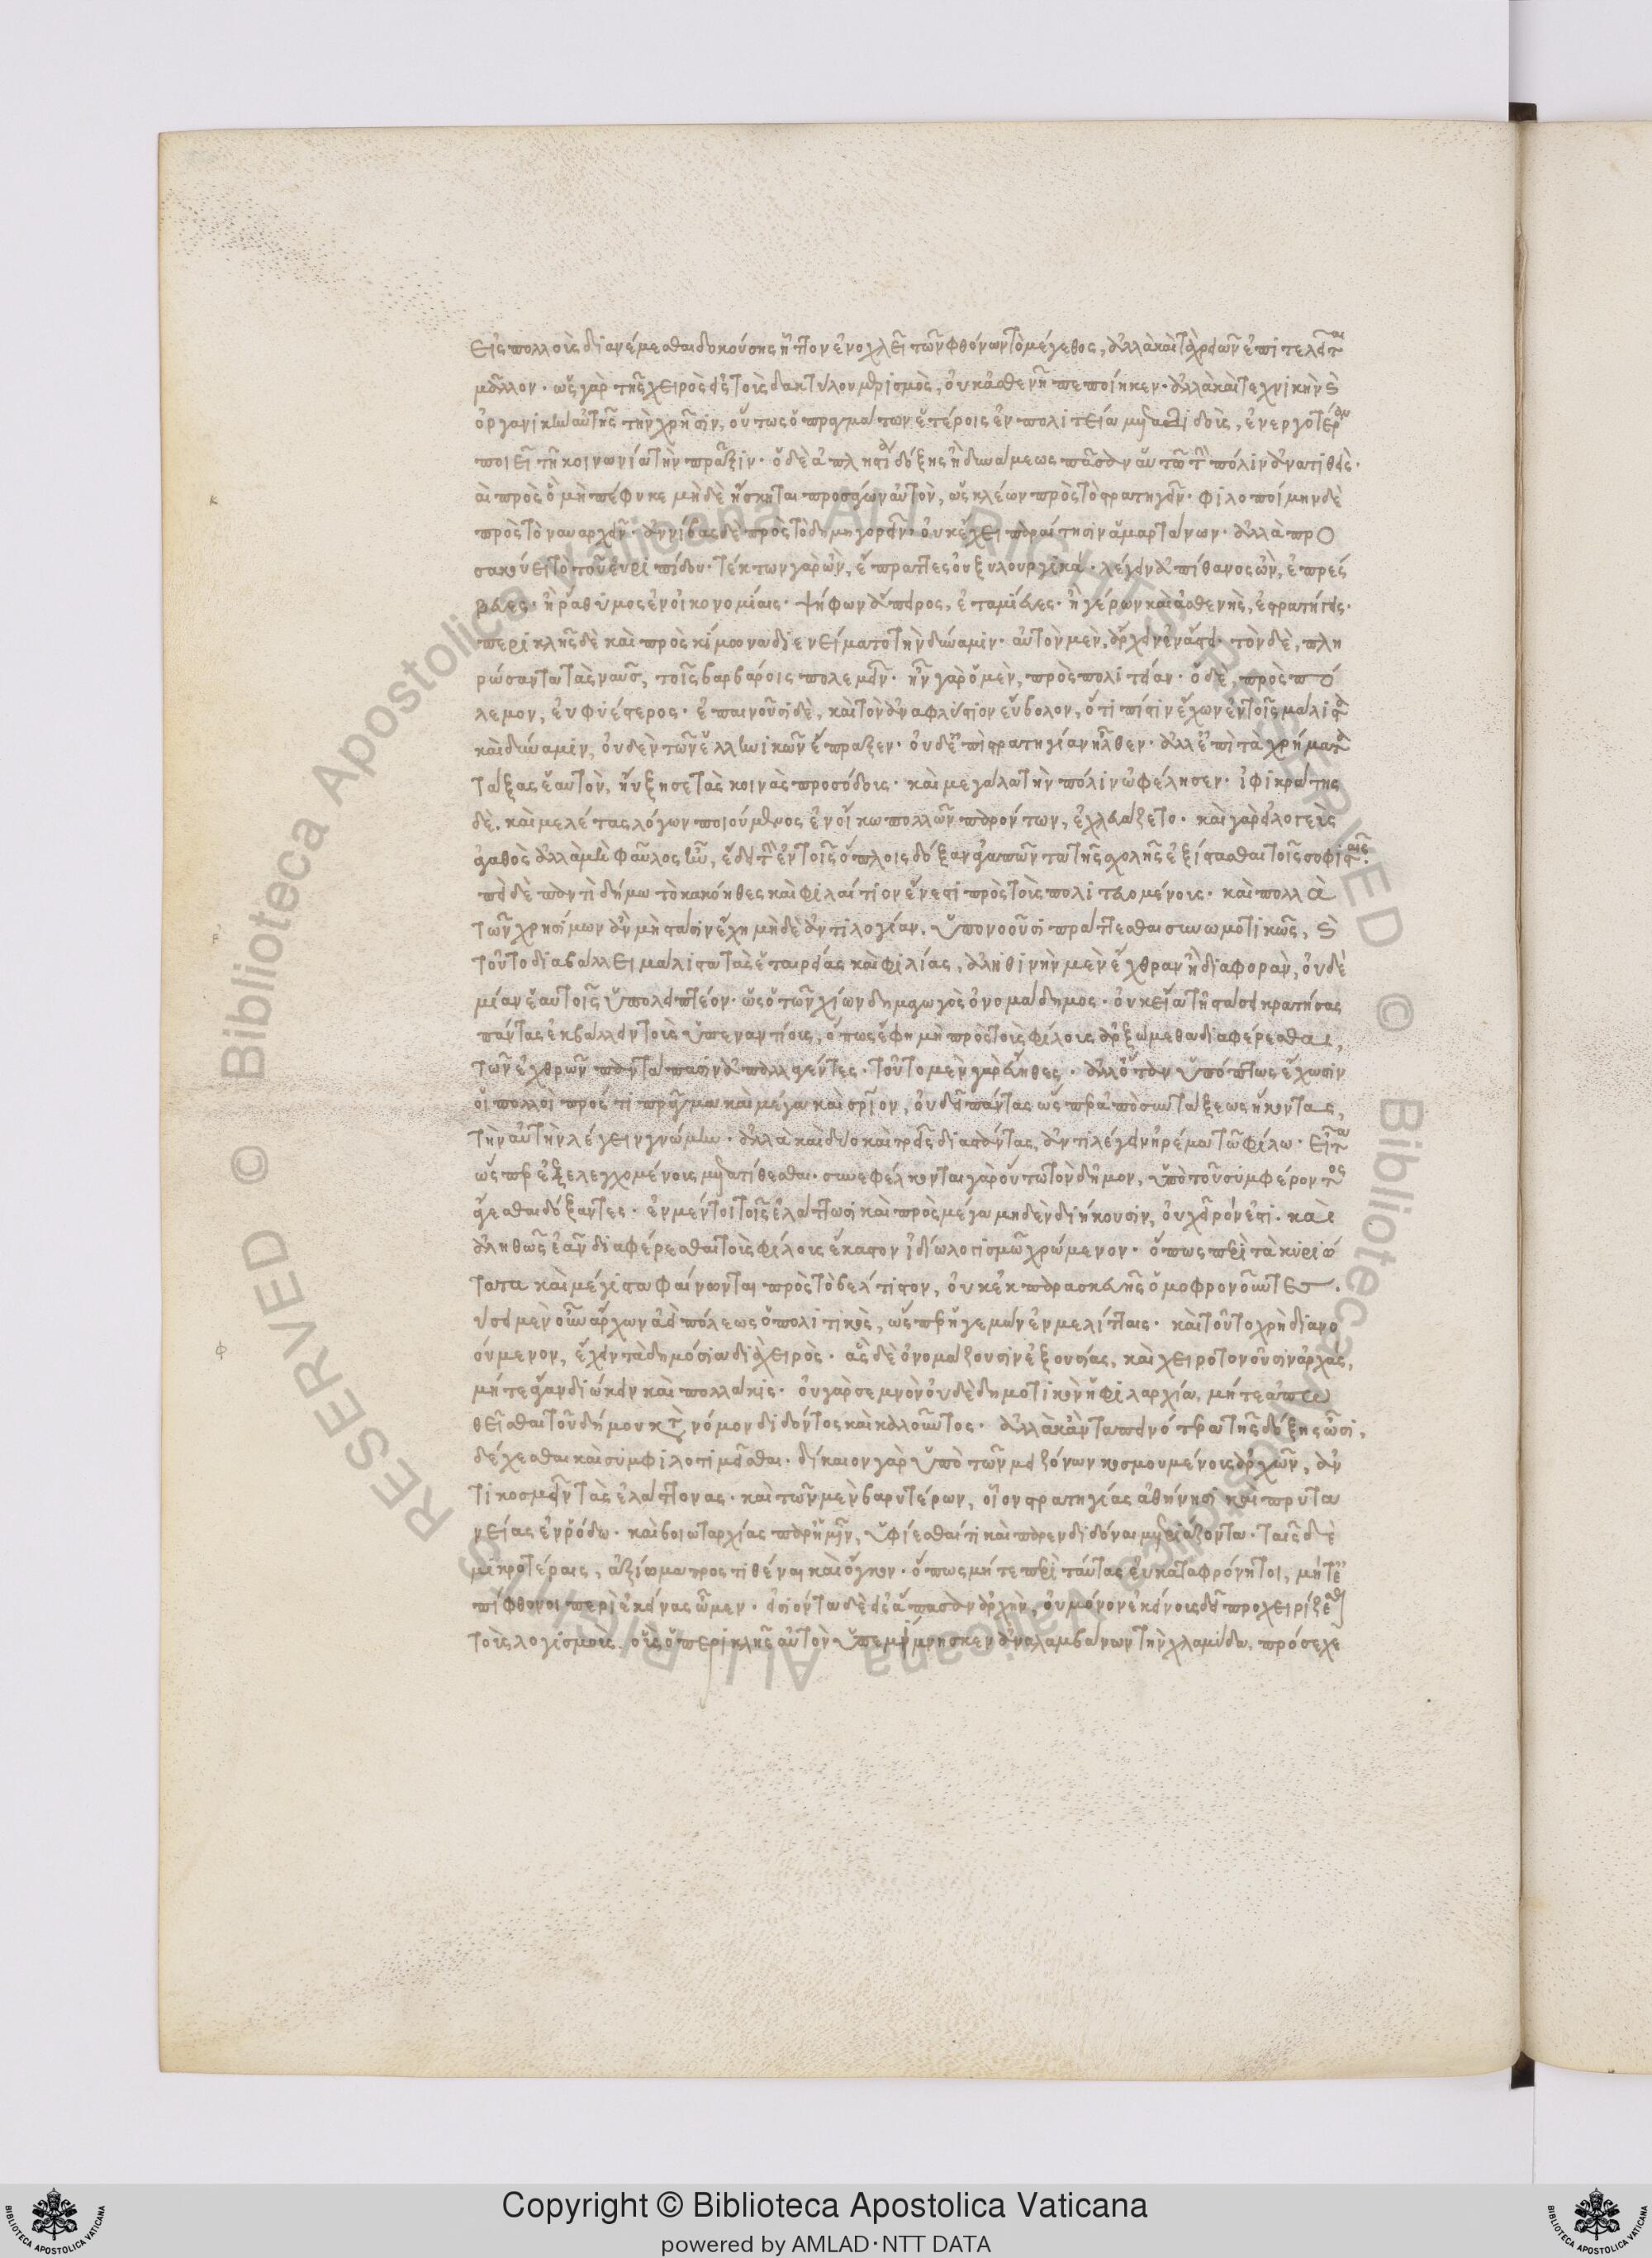 εἰς πολλοὺς διανέμεσθαι δοκούσης ἧττον ἐνοχλεῖ τῶν φθόνων τὸ μέγεθος, ἀλλὰ καὶ τὰ χρειῶν ἐπιτελεῖται
μᾶλλον· ὡς γὰρ τῆς χειρὸς εἰς τοὺς δακτύλους μερισμὸς, οὐκ ἀσθενῆ πεποίηκεν· ἀλλὰ καὶ τεχνικὴν καὶ
ὀργανικὴν αὐτῆς τὴν χρῆσιν, οὕτως ὁ πραγμάτων ἑτέροις ἐν πολιτείᾳ μεταδιδοὺς, ἐνεργοτέραν
ποιεῖ τῇ κοινωνίᾳ τὴν πρᾶξιν· ὁ δὲ ἀπληστίᾳ δόξης ἢ δυνάμεως πᾶσαν αὑτῷ τὴν πόλιν ἀνατιθεὶς·
αι πρὸς ὃ μὴ πέφυκε μὴ δὲ ἤσκηται προσάγων αὑτὸν, ὡς κλέων πρὸς τὸ στρατηγεῖν· φιλοποίμην δὲ
πρὸς τὸ ναυαρχεῖν· ἀννίβας δὲ πρὸς τὸ δημηγορεῖν· οὐκ ἔχει παραίτησιν ἁμαρτάνων· ἀλλὰ προ
σακούει τὸ τοῦ εὐριπίδου· τέκτων γὰρ ὢν, ἔπραττες οὐ ξυλουργικά· λέγειν ἀπίθανος ὢν, ἐπρέσ
βευες· ἢ ῥάθυμος ἐν οἰκονομίαις· ψήφων ἄπειρος, ἐταμίευες· ἢ γέρων καὶ ἀσθενὴς, ἐστρατήγεις·
περικλῆς δὲ καὶ πρὸς κίμωνα διενείματο τὴν δύναμιν· αὐτὸν μὲν, ἄρχειν ἐν ἄστει· τὸν δὲ, πλη
ρώσαντα τὰς ναῦς, τοῖς βαρβάροις πολεμεῖν· ἦν γὰρ ὁ μὲν, πρὸς πολιτείαν· ὁ δὲ, πρὸς πό
λεμον, εὐφυέστερος· ἐπαινοῦσι δὲ, καὶ τὸν ἀναφλύστιον εὔβολον, ὅτι πίστιν ἔχων ἐν τοῖς μάλιστα
καὶ δύναμιν, οὐδὲν τῶν ἑλληνικῶν ἔπραξεν· οὐδ' ἐπὶ στρατηγίαν ἦλθεν· ἀλλ' ἐπὶ τὰ χρήματα
τάξας ἑαυτὸν, ηὔξησε τὰς κοινὰς προσόδους· καὶ μεγάλα τὴν πόλιν ὠφέλησεν· ἰφικράτης
δὲ. καὶ μελέτας λόγων ποιούμενος ἐν οἴκῳ πολλῶν παρόντων, ἐχλευάζετο· καὶ γὰρ εἰ λογεὺς
ἀγαθὸς ἀλλὰ μὴ φαῦλος ἦν, ἔδει τὴν ἐν τοῖς ὅπλοις δόξαν ἀγαπῶντα τῆς σχολῆς ἐξίστασθαι τοῖς σοφισταῖς·
ἐπεὶ δὲ παντὶ δήμῳ τὸ κακόηθες καὶ φιλαίτιον ἔνεστι πρὸς τοὺς πολιτευομένους· καὶ πολλὰ
τῶν χρησίμων ἂν μὴ στάσιν ἔχῃ μὴ δὲ ἀντιλογίαν, ὑπονοοῦσι πράττεσθαι συνωμοτικῶς, καὶ
τοῦτο διαβάλλει μάλιστα τὰς ἑταιρείας καὶ φιλίας, ἀληθινὴν μὲν ἔχθραν ἢ διαφορὰν, οὐδε
μίαν ἑαυτοῖς ὑπολειπτέον· ὡς ὁ τῶν χίων δημαγωγὸς ὀνομάδημος· οὐκ εἴα τῇ στάσει κρατήσας
πάντας ἐκβάλλειν τοὺς ὑπεναντίους, ὅπως ἔφη μὴ πρὸς τοὺς φίλους ἀρξώμεθα διαφέρεσθαι,
τῶν ἐχθρῶν παντάπασιν ἀπαλλαγέντες· τοῦτο μὲν γὰρ εὔηθες· ἀλλ' ὅταν ὑπόπτως ἔχωσιν
οἱ πολλοὶ πρός τι πρᾶγμα καὶ μέγα καὶ σωτήριον, οὐ δεῖ πάντας ὥσπερ ἀπὸ συντάξεως ἥκοντας,
τὴν αὐτὴν λέγειν γνώμην· ἀλλὰ καὶ δύο καὶ τρεῖς διαστάντας ἀντιλέγειν ἠρέμα τῷ φίλῳ· εἶτα
ὥσπερ ἐξελεγχομένους μετατίθεσθαι· συνεφέλκονται γὰρ οὕτω τὸν δῆμον, ὑπὸ τοῦ συμφέροντος
ἄγεσθαι δόξαντες· ἐν μέντοι τοῖς ἐλάττωσι καὶ πρὸς μέγα μηδὲν διήκουσιν, οὐ χεῖρόν ἐστι· καὶ
ἀληθῶς ἐᾶν διαφέρεσθαι τοὺς φίλους ἕκαστον ἰδίῳ λογισμῷ χρώμενον· ὅπως περὶ τὰ κυριώ
τατα καὶ μέγιστα φαίνωνται πρὸς τὸ βέλτιστον, οὐκ ἐκ παρασκευῆς ὁμοφρονοῦντες·
φύσει μὲν οὖν ἄρχων ἀεὶ πόλεως ὁ πολιτικὸς, ὥσπερ ἡγεμὼν ἐν μελίτταις· καὶ τοῦτο χρὴ διανο
ούμενον, ἔχειν τὰ δημόσια διὰ χειρὸς· ἃς δὲ ὀνομάζουσιν ἐξουσίας, καὶ χειροτονοῦσιν ἀρχάς,
μήτε ἄγαν διώκειν καὶ πολλάκις· οὐ γὰρ σεμνὸν οὐδὲ δημοτικὸν ἡ φιλαρχία, μήτε ἀπω
θεῖσθαι τοῦ δήμου κατὰ νόμον διδόντος καὶ καλοῦντος· ἀλλὰ κἂν ταπεινότεραι τῆς δόξης ὦσι,
δέχεσθαι καὶ συμφιλοτιμεῖσθαι· δίκαιον γὰρ ὑπὸ τῶν μειζόνων κοσμουμένους ἀρχῶν, ἀν
τικοσμεῖν τὰς ἐλάττονας· καὶ τῶν μὲν βαρυτέρων, οἷον στρατηγίας ἀθήνησι καὶ πρυτα
νείας ἐν ῥόδῳ· καὶ βοιωταρχίας παρ' ἡμῖν, ὑφίεσθαί τι καὶ παρενδιδόναι μετριάζοντα· ταῖς δὲ
μικροτέραις, ἀξίωμα προστιθέναι καὶ ὄγκον· ὅπως μήτε περὶ ταύτας εὐκαταφρόνητοι, μήτ' ἐ
πίφθονοι περὶ ἐκείνας ὦμεν· εἰσιόντα δὲ εἰς ἅπασαν ἀρχὴν, οὐ μόνον ἐκείνους δεῖ προχειρίζεσθαι
τοὺς λογισμοὺς, οὓς ὁ περικλῆς αὑτὸν ὑπεμίμνησκεν ἀναλαμβάνων τὴν χλαμύδα, πρόσεχε
Copyright © Biblioteca Apostolica Vaticana
powered by AMLAD·NTT DATA